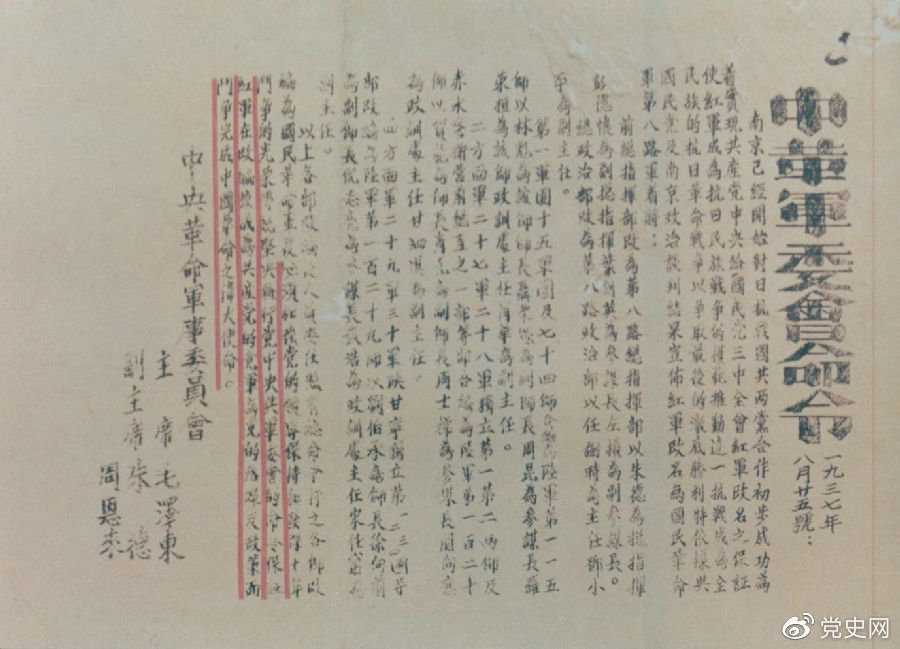 中革軍委會命令
一九三七年
八月廿五號：
南京已經開始對日抗戰國共兩黨合作初步成功為
着實現共產党中央給國民党三中全會紅軍改名之保証
使紅軍成為抗日民族戰爭的模範推動這一抗戰成為全
民族的抗日革命戰爭以爭取最後的澈底勝利特依據與
國民党及南京政治談判結果宣佈紅軍改名為國民革命
軍第八路軍着將：
前總指揮部改為第八路總指揮部以朱德為總指揮
彭德懷為副總指揮葉劍英為參謀長左權為副參謀長。
總政治部改為第八路政治部以任弼時為主任鄧小
平為副主任。
第一軍團十五軍團及七十四師 為陸軍第一一五
師以林彪為該師師長聶榮臻為副師長周昆為參謀長羅
榮桓為該師政訓處主任蕭華為副主任。
二方面軍二十七軍二十八軍獨立第一第二兩師及
赤水 總直之一部等部合編為陸軍第一百二十
師以賀龍為師長蕭克為副師長周士 為參謀長關向應
為政訓處主任甘泗淇為副主任。
四方面軍二十九軍三十軍陝甘寧獨立第一二三四等
部改編為陸軍第一百二十九師以劉伯承為師長徐向前
為副師長倪志亮為參謀長張浩為政訓處主任宋任窮為
副主任。
以上各部改編後人員委任照 命令行之各師改
編為國民革命軍後必須 党的領導保持 發揮十年
鬥爭的光榮 堅決執行党中央與軍委會的命令保証
紅軍在改編後成為共產党的党軍為党的 及政策而
鬥爭完成中國革命之偉大使命。
中央革命軍事委員會
主席毛澤東
副主席朱德
周恩來
党史网